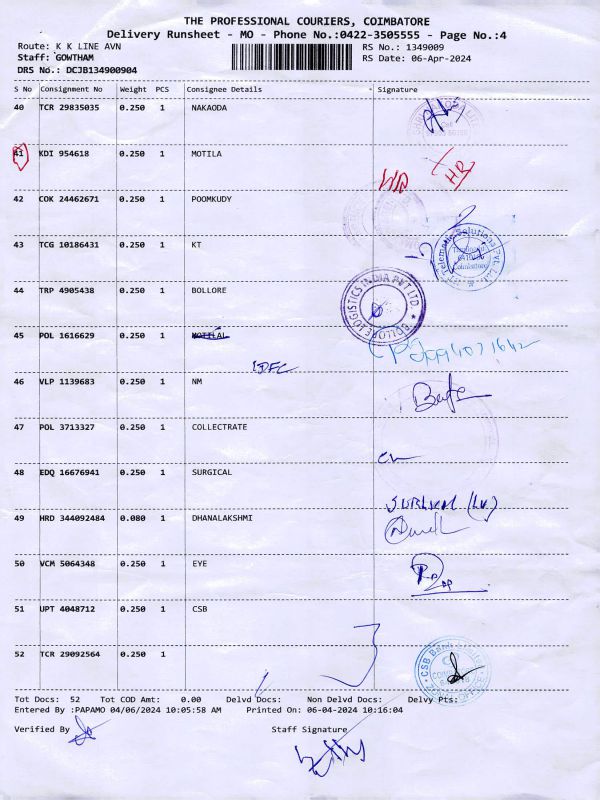 THE PROFESSIONAL COURIERS, COIMBATORE
Delivery Runsheet - MO - Phone No.:0422-3505555 - Page No.:4
Route: K K LINE AVN RS No.: 1349009
Staff: GOWTHAM RS Date: 06-Apr-2024
DRS No.: DCJB134900904
S No Consignment No Weight PCS Consignee Details Signature
40 TCR 29835035 0.250 1 NAKAODA
41 KDI 954618 0.250 1 MOTILA
HR
42 COK 24462671 0.250 1 POOMKUDY
43 TCG 10186431 0.250 1 KT
Telematic Solutions Pvt. Ltd.
Coimbatore
44 TRP 4905438 0.250 1 BOLLORE
BOLLORE LOGISTICS INDIA PVT LTD.
45 POL 1616629 0.250 1 MOTILAL
IDFC
46 VLP 1139683 0.250 1 NM
47 POL 3713327 0.250 1 COLLECTRATE
48 EDQ 16676941 0.250 1 SURGICAL
49 HRD 344092484 0.080 1 DHANALAKSHMI
50 VCM 5064348 0.250 1 EYE
51 UPT 4048712 0.250 1 CSB
CSB Bank
52 TCR 29092564 0.250 1
Tot Docs: 52 Tot COD Amt: 0.00 Delvd Docs: Non Delvd Docs: Delvy Pts:
Entered By :PAPAMO 04/06/2024 10:05:58 AM Printed On: 06-04-2024 10:16:04
Verified By Staff Signature